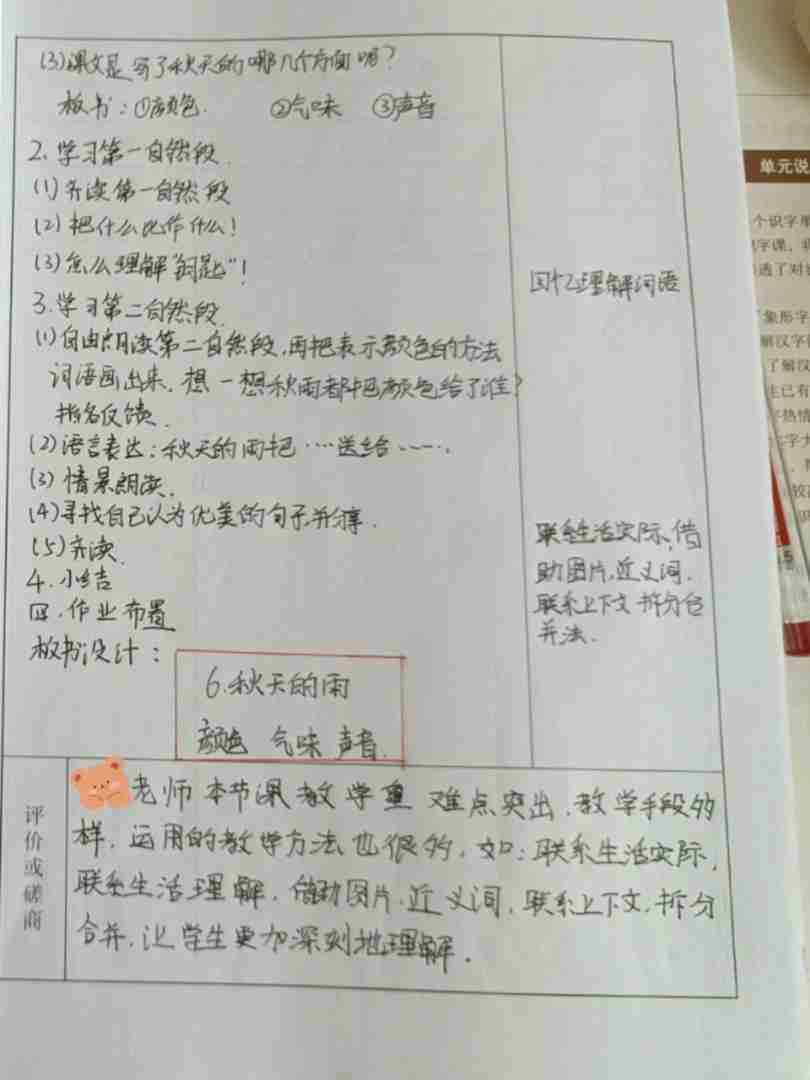 (3)课文是写了秋天的哪几个方面呢?
板书:①颜色. ②气味 ③声音
2、学习第一自然段.
(1)齐读第一自然段
(2)把什么比作什么!
(3)怎么理解"钥匙"!
3.学习第二自然段.
(1)自由朗读第二自然段,再把表示颜色的方法
词语画出来.想一想秋雨者都把颜色给了谁?
指名反馈.
(2)语言表达:秋天的雨把……送给…….
(3)情景朗读.
(4)寻找自己认为优美的句子,并分享.
(5)齐读.
4.小结
四.作业布置
板书设计:
6.秋天的雨
颜色 气味 声音.
回忆理解词语
联系生活实际,借
助图片,近义词.
联系上下文 拆分合
并法.
评价或磋商
老师本节课教学重难点突出,教学手段多
样.运用的教学方法也很多,如:联系生活实际,
联系生活理解.借助图片,近义词,联系上下文.拆分
合并.让学生更加深刻地理解.
单元说
个识字单
解汉字
了解汉